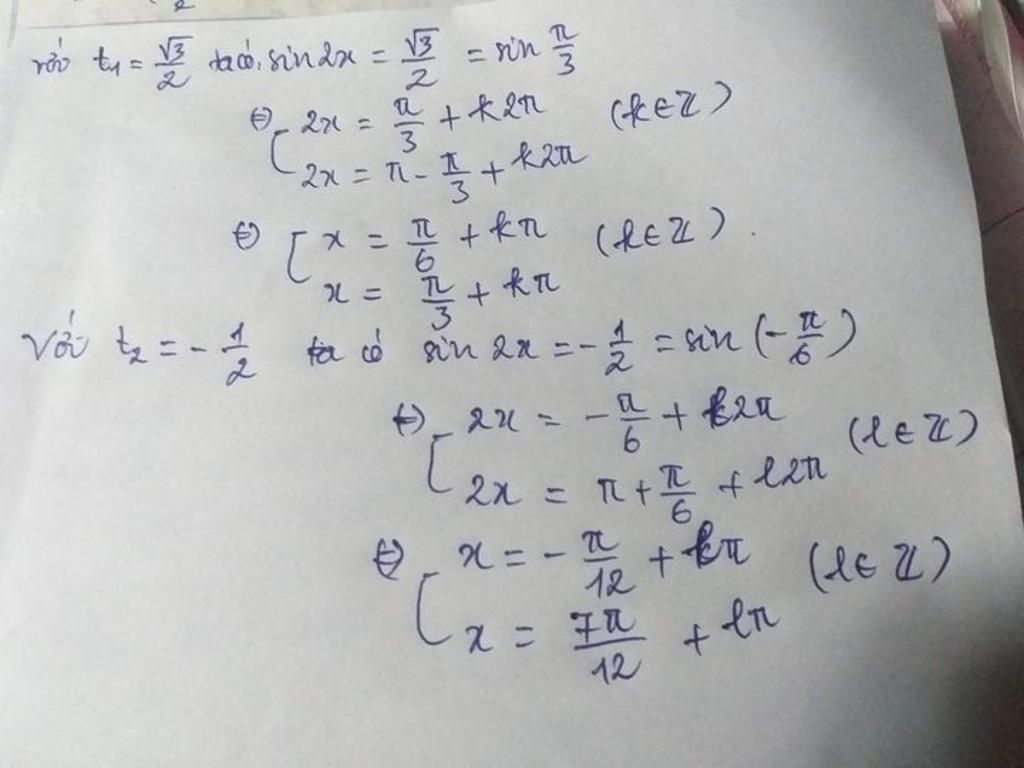 với t₁ = √3/2 ta có: sin 2x = √3/2 = sin π/3
⇔ [ 2x = π/3 + k2π (k∈Z)
2x = π - π/3 + k2π
⇔ [ x = π/6 + kπ (k∈Z).
x = π/3 + kπ
Với t₂ = -1/2 ta có sin 2x = -1/2 = sin (-π/6)
⇔ [ 2x = -π/6 + l2π (l∈Z)
2x = π + π/6 + l2π
⇔ [ x = -π/12 + lπ (l∈Z)
x = 7π/12 + lπ